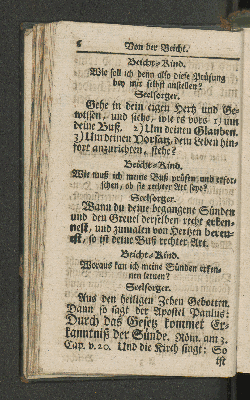 6 Von der Beicht.
Beicht-Kind.
Wie soll ich denn also diese Prüfung
bey mir selbst anstellen?
Seelsorger.
Gehe in dein eigen Hertz und Ge-
wissen, und siehe, wie es vors 1) um
deine Buß, 2) Um deinen Glauben,
3) Um deinen Vorsatz, dein Leben hin-
fort anzurichten, stehe?
Beicht-Kind.
Wie muß ich meine Buß prüfen und erfor-
schen, ob sie rechter Art seye?
Seelsorger.
Wann du deine begangene Sünden
und den Greuel derselben recht erken-
nest, und zumalen von Hertzen bereu-
est, so ist deine Buß rechter Art.
Beicht-Kind.
Woraus kan ich meine Sünden erken-
nen lernen?
Seelsorger.
Aus den heiligen Zehen Gebotten.
Dann so sagt der Apostel Paulus:
Durch das Gesetz kommet Er-
kanntniß der Sünde. Röm. am 3.
Cap. v. 20. Und die Kirch singt: So
ist